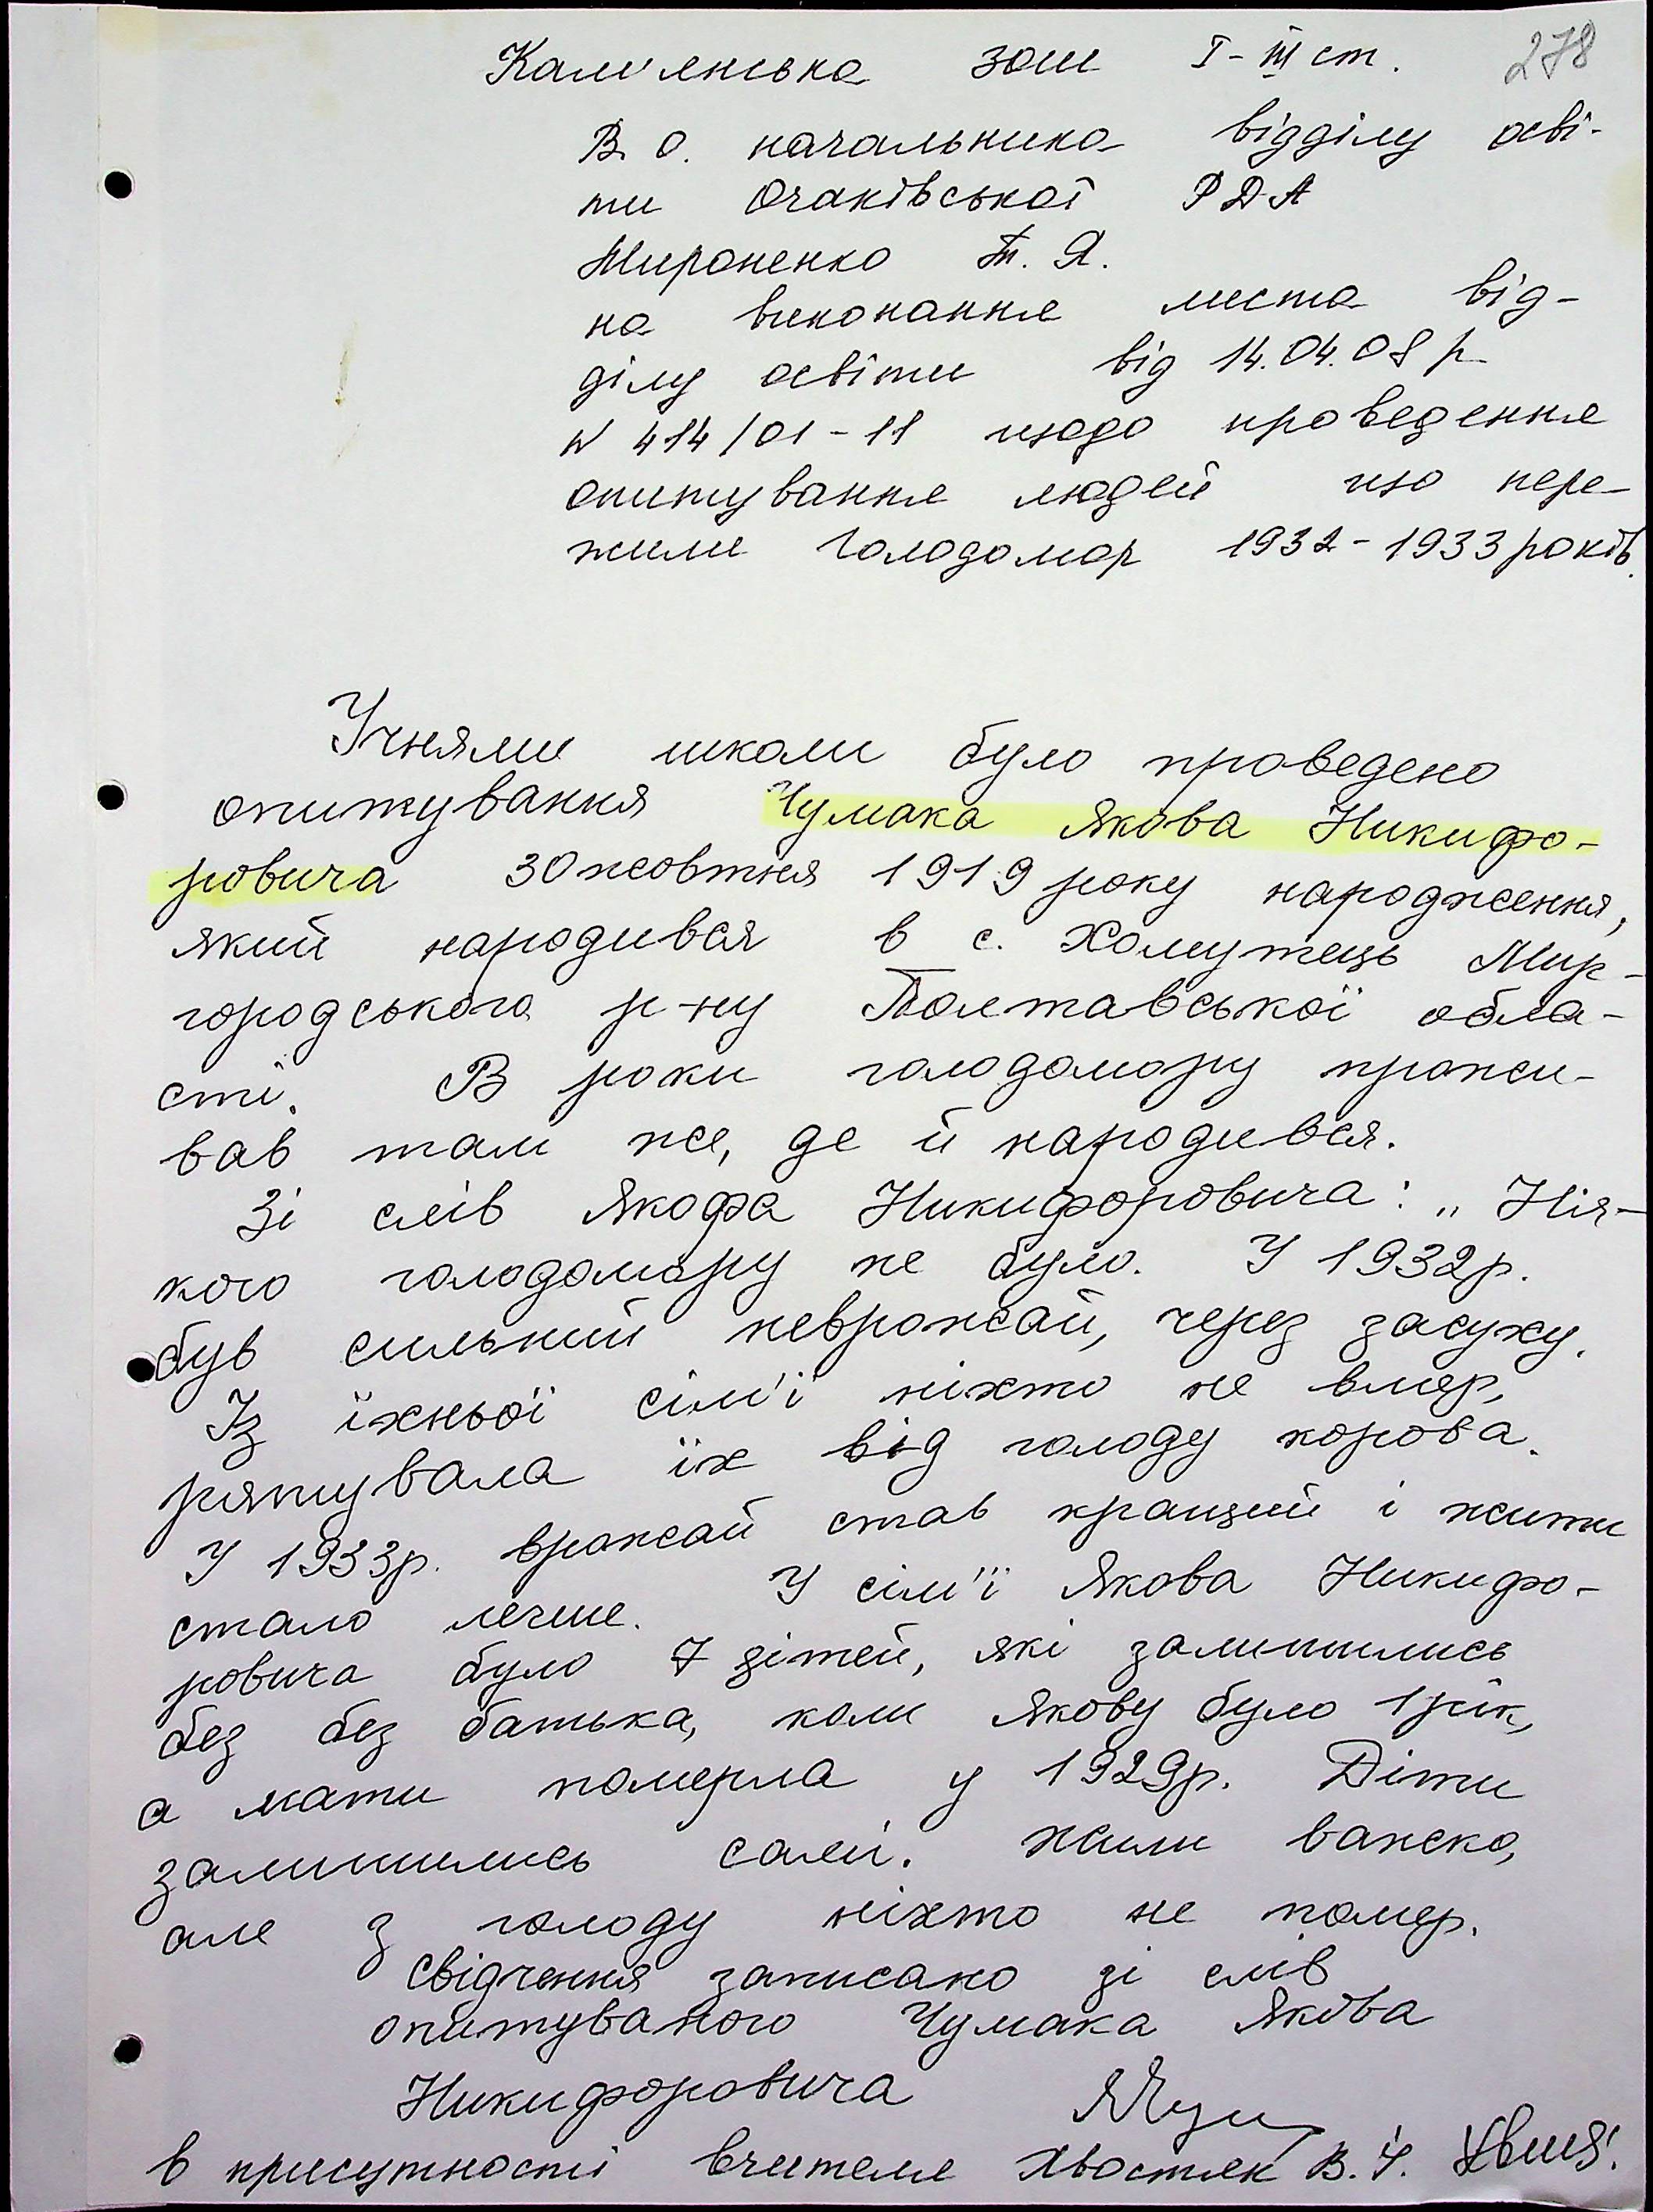 278
Кам'янська зош I-III ст.
В. о. начальника відділу осві-
ти Очаківської РДА
Мироненко Т. Я.
на виконання листа від-
ділу освіти від 14.04.08 р
N 414/01-11 щодо проведення
опитування людей що пере-
жили Голодомор 1932-1933 років.
Учнями школи було проведено
опитування Чумака Якова Никифо-
ровича 30 жовтня 1919 року народження,
який народився в с. Хомутець Мир-
городського р-ну Полтавської обла-
сті. В роки голодомору прожи-
вав там же, де й народився.
Зі слів Якофа Никифоровича: „Нія-
кого голодомору не було. У 1932р.
був сильний неврожай, через засуху.
Із їхньої сім'ї ніхто не вмер,
рятувала їх від голоду корова.
У 1933р. врожай став кращий і жити
стало легше. У сім'ї Якова Никифо-
ровича було 7 дітей, які залишились
без без батька, коли Якову було 1 рік,
а мати померла у 1929р. Діти
залишились самі. Жили важко,
але з голоду ніхто не помер.
Свідчення записано зі слів
опитуваного Чумака Якова
Никифоровича
в присутності вчителя Хвостяк В. І.